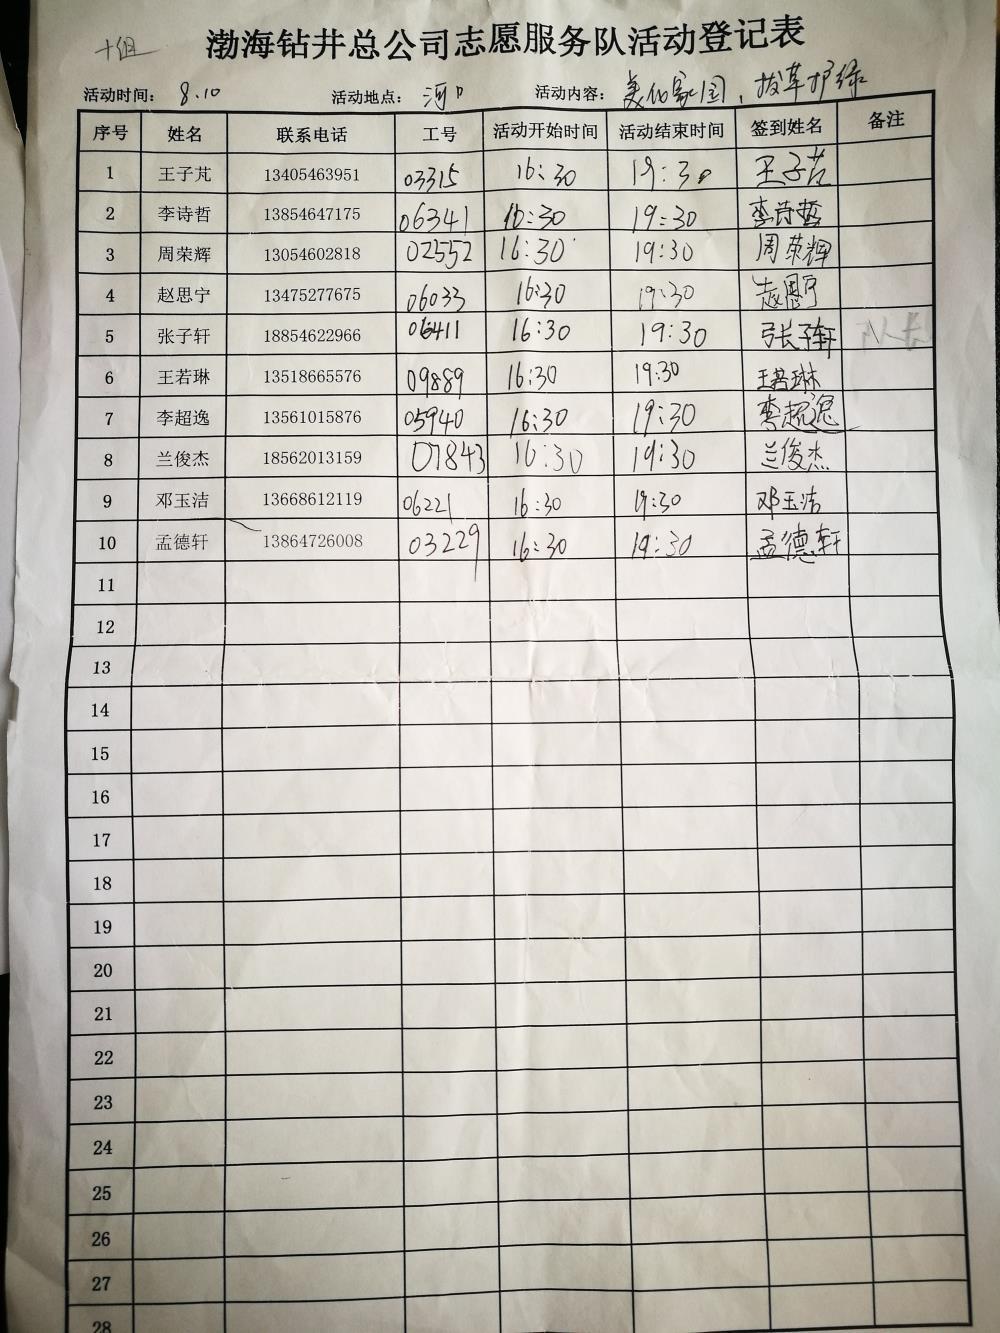 十组
渤海钻井总公司志愿服务队活动登记表
活动时间： 8.10 活动地点： 河口 活动内容： 美化家园，拔草护绿
序号 姓名 联系电话 工号 活动开始时间 活动结束时间 签到姓名 备注
1 王子芃 13405463951 03315 16:30 19:30 王子芃
2 李诗哲 13854647175 06341 16:30 19:30 李诗哲
3 周荣辉 13054602818 02552 16:30 19:30 周荣辉
4 赵思宁 13475277675 06033 16:30 19:30 赵思宁
5 张子轩 18854622966 06411 16:30 19:30 张子轩
6 王若琳 13518665576 09889 16:30 19:30 王若琳
7 李超逸 13561015876 05940 16:30 19:30 李超逸
8 兰俊杰 18562013159 07843 16:30 19:30 兰俊杰
9 邓玉洁 13668612119 06221 16:30 19:30 邓玉洁
10 孟德轩 13864726008 03229 16:30 19:30 孟德轩
11
12
13
14
15
16
17
18
19
20
21
22
23
24
25
26
27
28